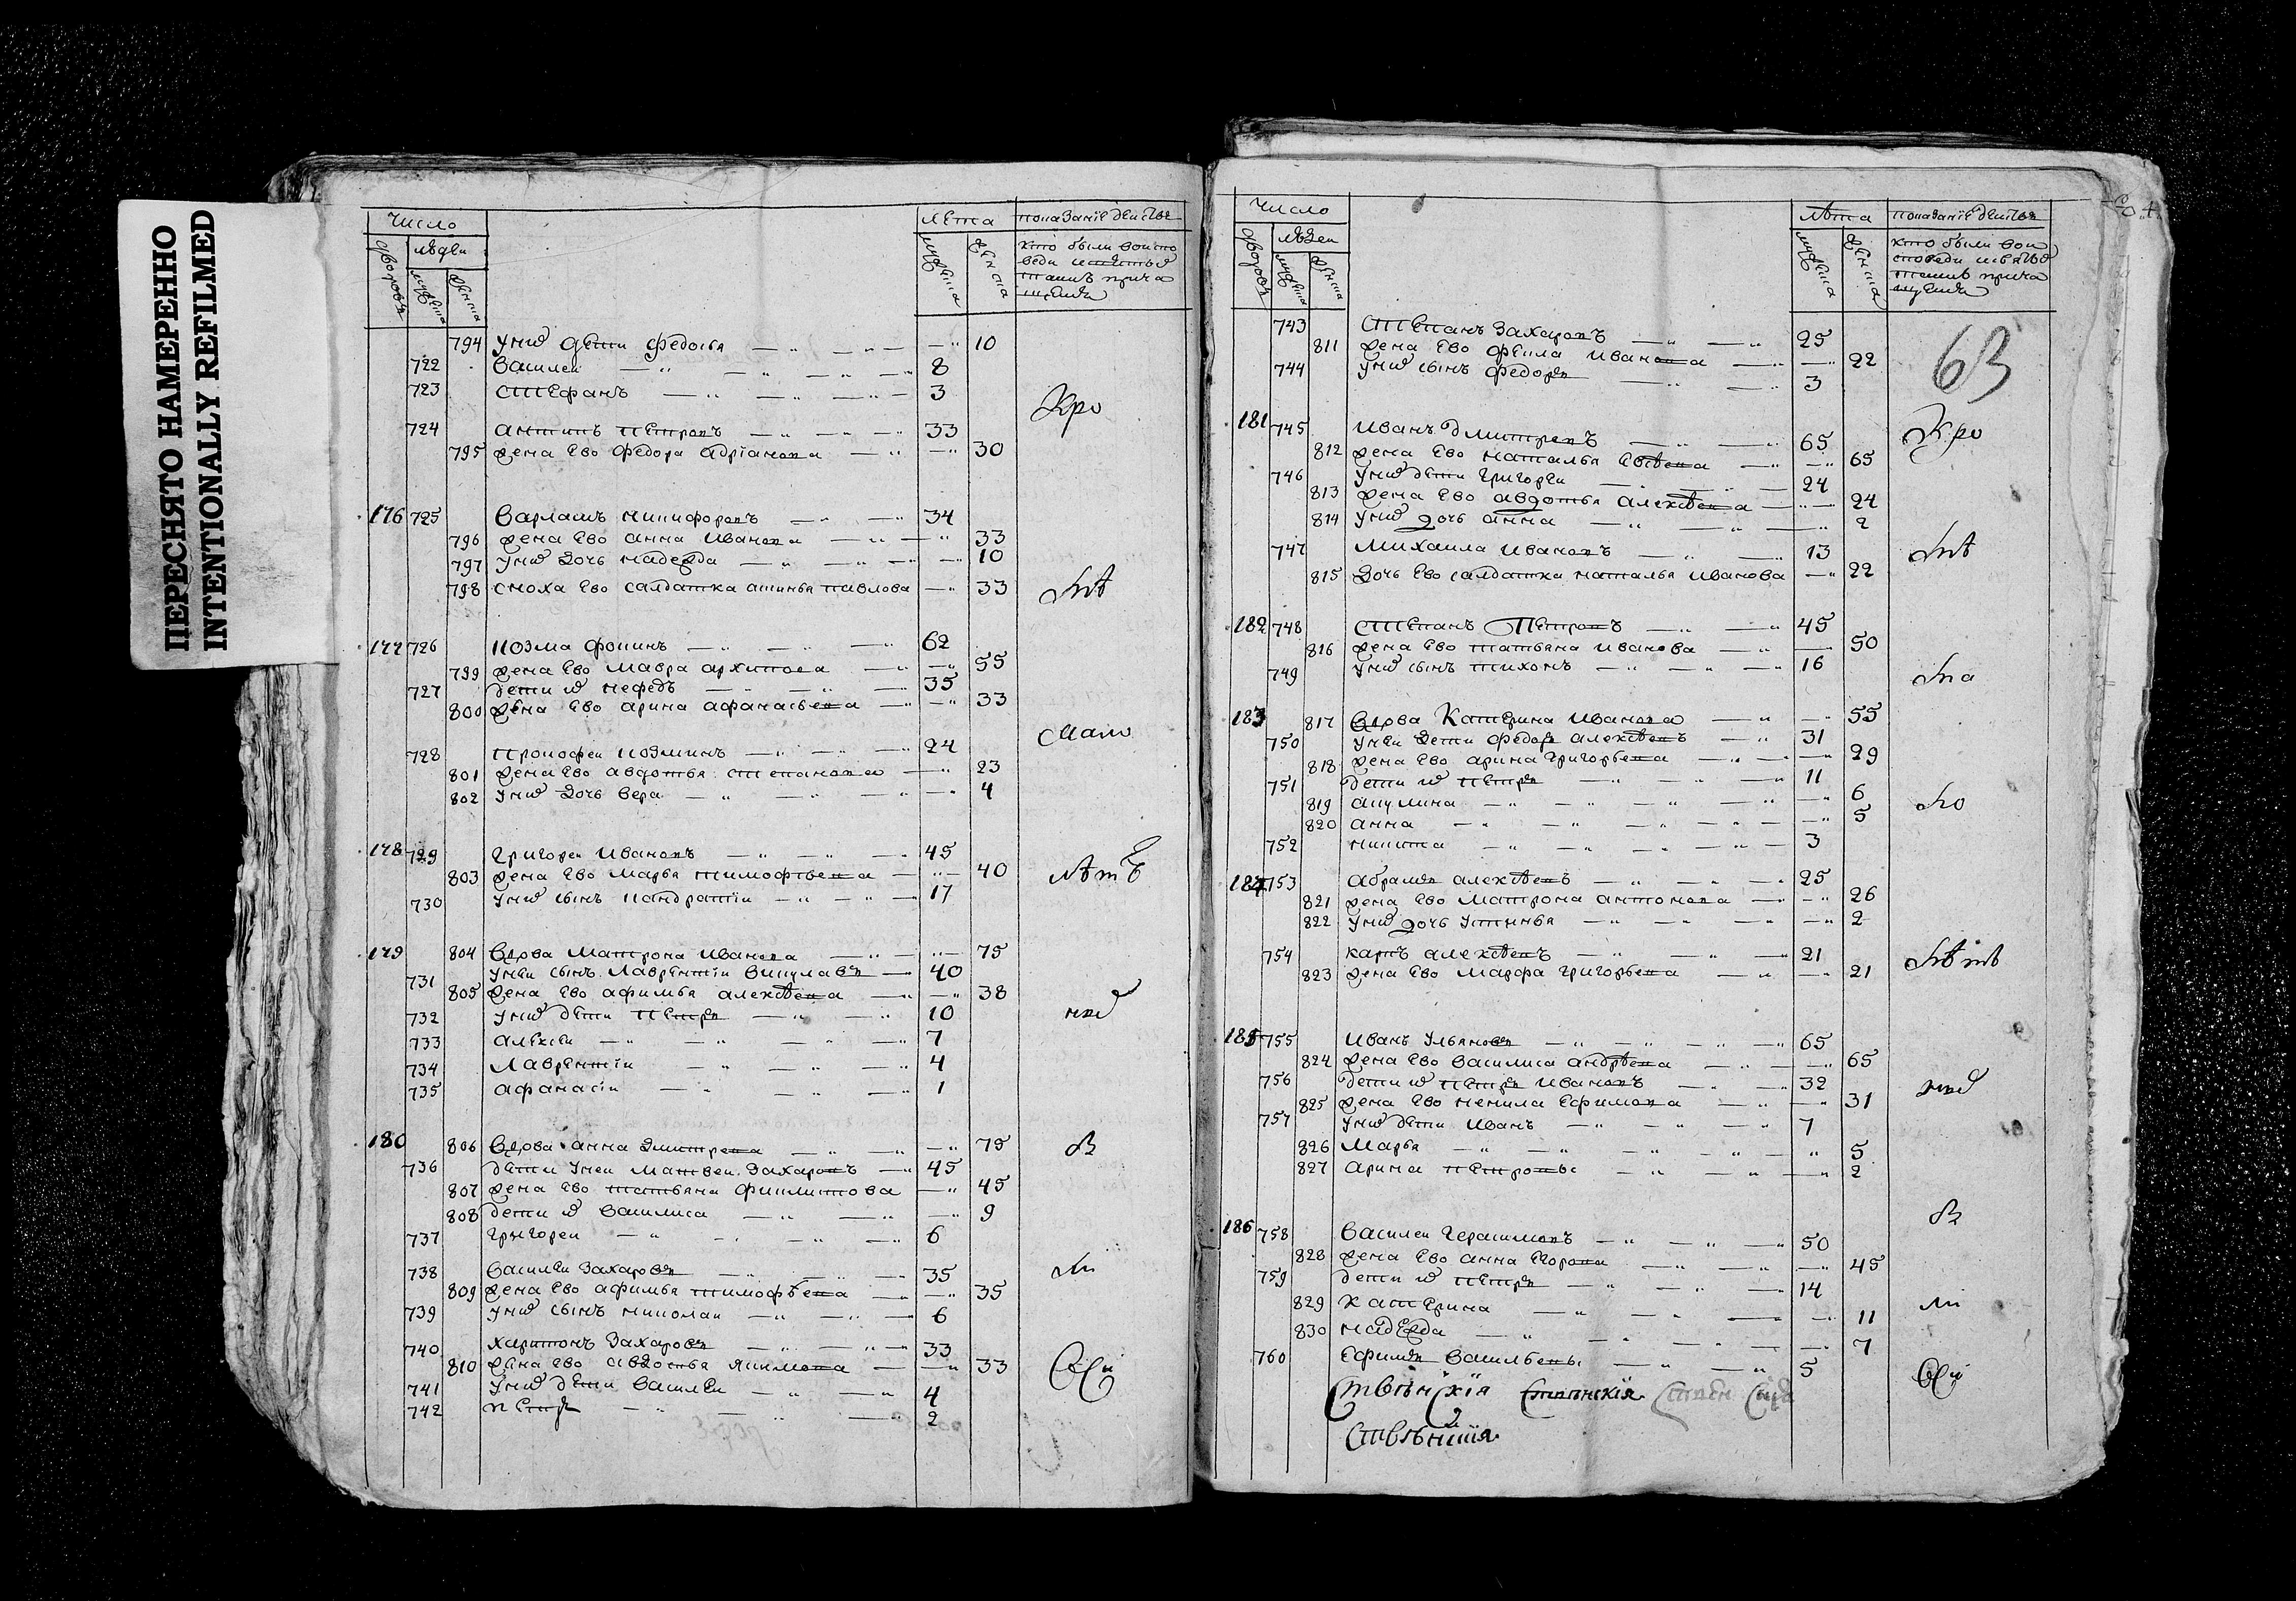 ПЕРЕСНЯТО НАМЕРЕННО
INTENTIONALLY REFILMED
Число лѣта показанїе действъ
дворовъ людеи мужеска женска мужеска женска кто были во испо
веди и святыхъ
таинъ прича
щенїи
794 у нихъ дети федосья 10
722 василеи 8
723 стефанъ 3
Кро
724 антипъ петровъ 33
795 жена ево федора адрїанова 30
176 725 варламъ никифоровъ 34
796 жена ево анна иванова 33
797 у нихъ дочь надежда 10
798 сноха ево салдатка павлова 33
мѣ
177 726 козма фокинъ 62
799 жена ево мавра архипова 55
727 дети ихъ нефедъ 35
800 жена ево арина афанасьева 33
728 прокофеи козминъ 24
801 жена ево авдотья степанова 23
802 у нихъ дочь вера 4
178 729 григореи ивановъ 45
803 жена ево марья тимофѣева 40
лѣтъ
730 у нихъ сынъ кандратїи 17
179 804 вдова матрона иванова 75
731 у неи сынъ лаврентїи викулавъ 40
805 жена ево афимья алексѣева 38
732 у нихъ дети петръ 10
733 алексеи 7
734 лаврентїи 4
735 афанасїи 1
180 806 вдова анна дмитрева 75
в
736 дети у неи матвеи захаровъ 45
807 жена ево татьяна филипова 45
808 дети ихъ василиса 9
737 григореи 6
738 василеи захаровъ 35
809 жена ево афимья тимофѣева 35
739 у нихъ сынъ николаи 6
740 харитонъ захаровъ 33
810 жена ево авдотья якимова 33
741 у нихъ дети василеи 4
742 петръ 2
Число лѣта показанїе действъ
дворовъ людеи мужеска женска мужеска женска кто были во и
споведи и святыхъ
таинъ прича
щенїи
63
743 степанъ захаровъ 25
811 жена ево фекла иванова 22
744 у нихъ сынъ федоръ 3
181 745 иванъ дмитревъ 65
Кро
812 жена ево наталья евсѣева 65
746 у нихъ дети григореи 24
813 жена ево авдотья алексѣева 24
814 у нихъ дочь анна 2
747 михаила ивановъ 13
мѣ
815 дочь ево салдатка наталья иванова 22
182 748 степанъ петровъ 45
816 жена ево татьяна иванова 50
749 у нихъ сынъ тихонъ 16
183 817 вдова катерина иванова 55
750 у неи дети федоръ алексѣевъ 31
818 жена ево арина григорьева 29
751 дети ихъ петръ 11
819 акулина 6
820 анна 5
752 никита 3
184 753 абрамъ алексѣевъ 25
821 жена ево матрона антонова 26
822 у нихъ дочь устинья 2
754 карпъ алексѣевъ 21
823 жена ево марфа григорьева 21
185 755 иванъ ульяновъ 65
824 жена ево василиса андрѣева 65
756 дети ихъ петръ ивановъ 32
825 жена ево ненила ефимова 31
757 у нихъ дети иванъ 7
826 марья 5
827 арина петровы 2
в
186 758 василеи герасимовъ 50
828 жена ево анна егорова 45
759 дети ихъ петръ 14
829 катерина 11
830 надежда 7
760 ефимъ васильевы 5